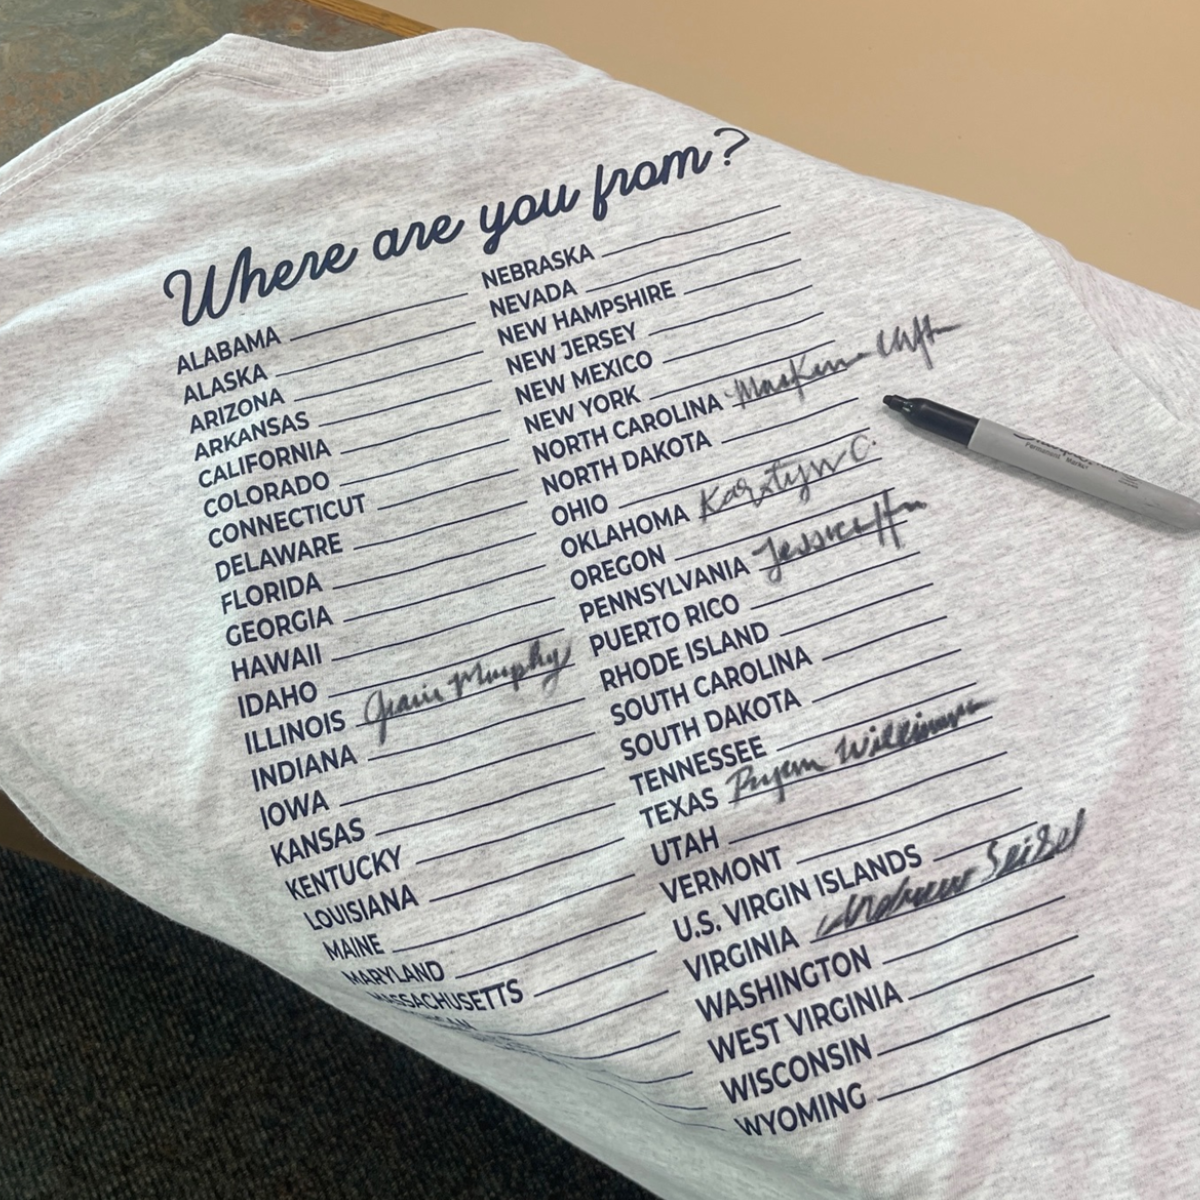 Where are you from?
ALABAMA
ALASKA
ARIZONA
ARKANSAS
CALIFORNIA
COLORADO
CONNECTICUT
DELAWARE
FLORIDA
GEORGIA
HAWAII
IDAHO
ILLINOIS Murphy
INDIANA
IOWA
KANSAS
KENTUCKY
LOUISIANA
MAINE
MARYLAND
MASSACHUSETTS
NEBRASKA
NEVADA
NEW HAMPSHIRE
NEW JERSEY
NEW MEXICO
NEW YORK
NORTH CAROLINA
NORTH DAKOTA
OHIO
OKLAHOMA C.
OREGON
PENNSYLVANIA
PUERTO RICO
RHODE ISLAND
SOUTH CAROLINA
SOUTH DAKOTA
TENNESSEE
TEXAS
UTAH
VERMONT
U.S. VIRGIN ISLANDS
VIRGINIA Andrew Seibel
WASHINGTON
WEST VIRGINIA
WISCONSIN
WYOMING
Permanent Marker